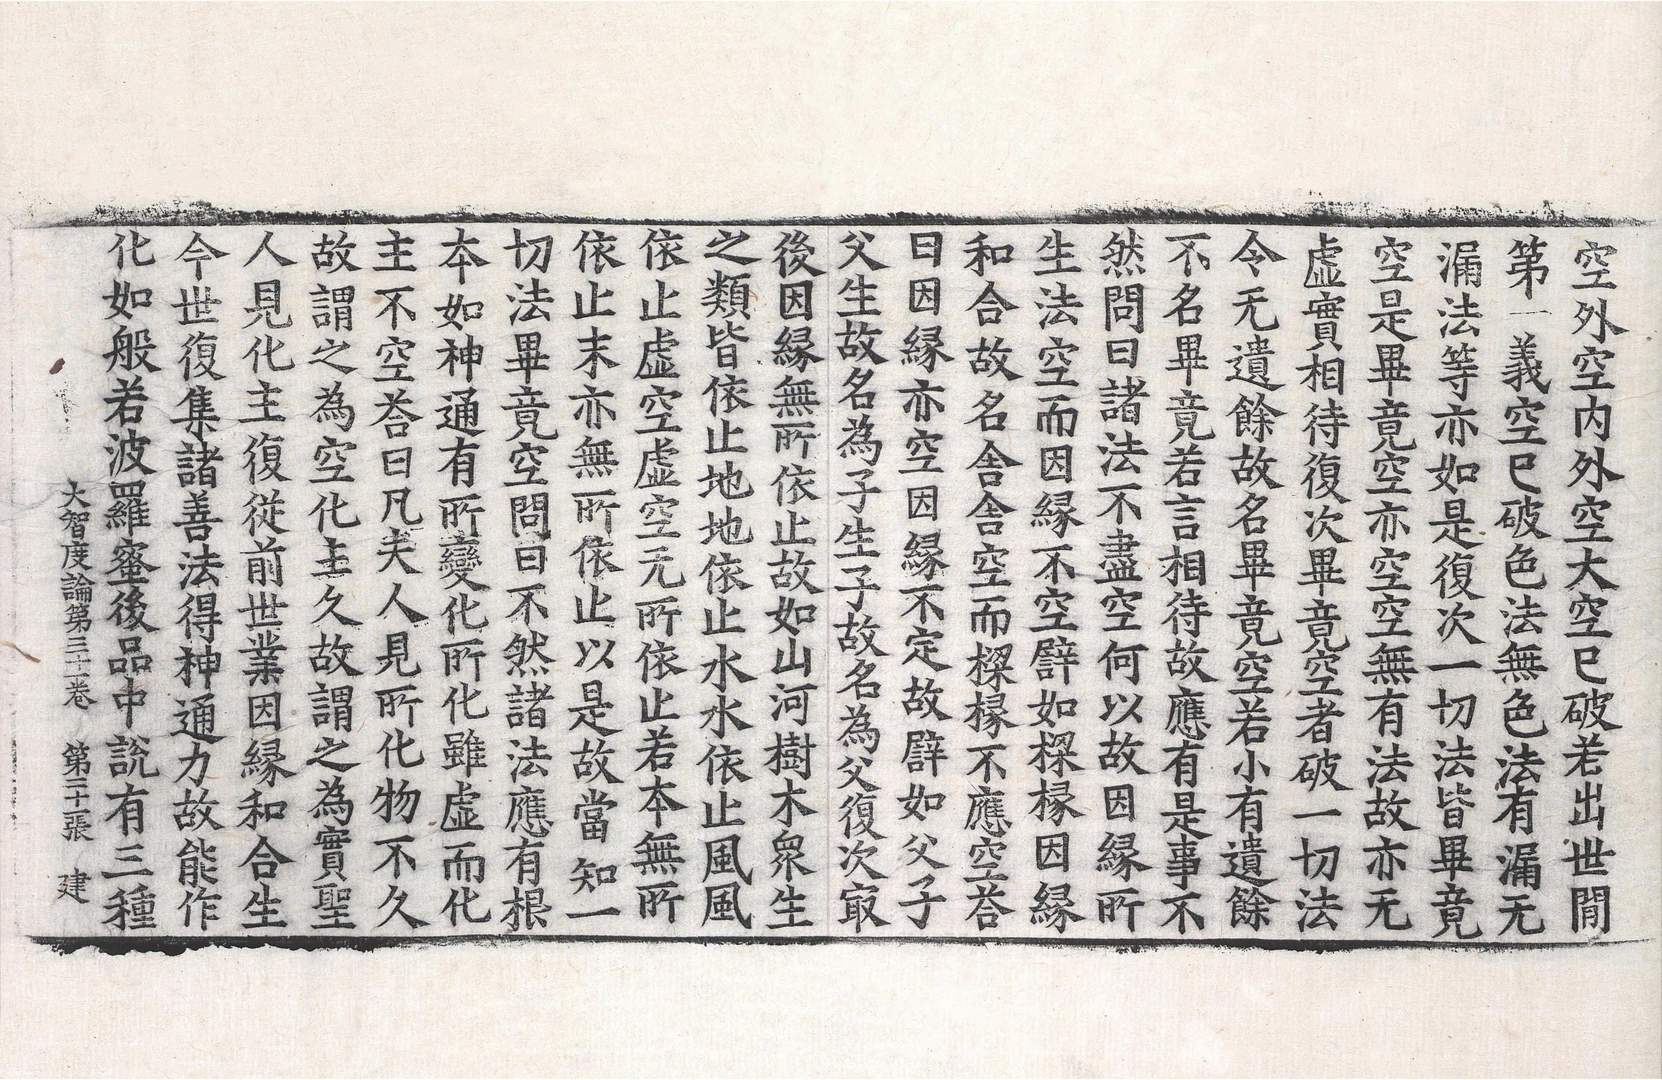 空外空内外空大空已破若出世閒
第一義空已破色法無色法有漏无
漏法等亦如是復次一切法皆畢竟
空是畢竟空亦空空無有法故亦无
虛實相待復次畢竟空者破一切法
令无遺餘故名畢竟空若小有遺餘
不名畢竟若言相待故應有是事不
然問曰諸法不盡空何以故因縁所
生法空而因縁不空譬如樑椽因縁
和合故名舍舍空而樑椽不應空荅
曰因縁亦空因縁不定故譬如父子
父生故名為子生子故名為父復次冣
後因縁無所依止故如山河樹木衆生
之類皆依止地地依止水水依止風風
依止虛空虛空无所依止若本無所
依止末亦無所依止以是故當知一
切法畢竟空問曰不然諸法應有根
本如神通有所變化所化雖虛而化
主不空荅曰凡夫人見所化物不久
故謂之為空化主久故謂之為實聖
人見化主復從前世業因縁和合生
今世復集諸善法得神通力故能作
化如般若波羅蜜後品中説有三種
大智度論第三十一卷 第二十張 建